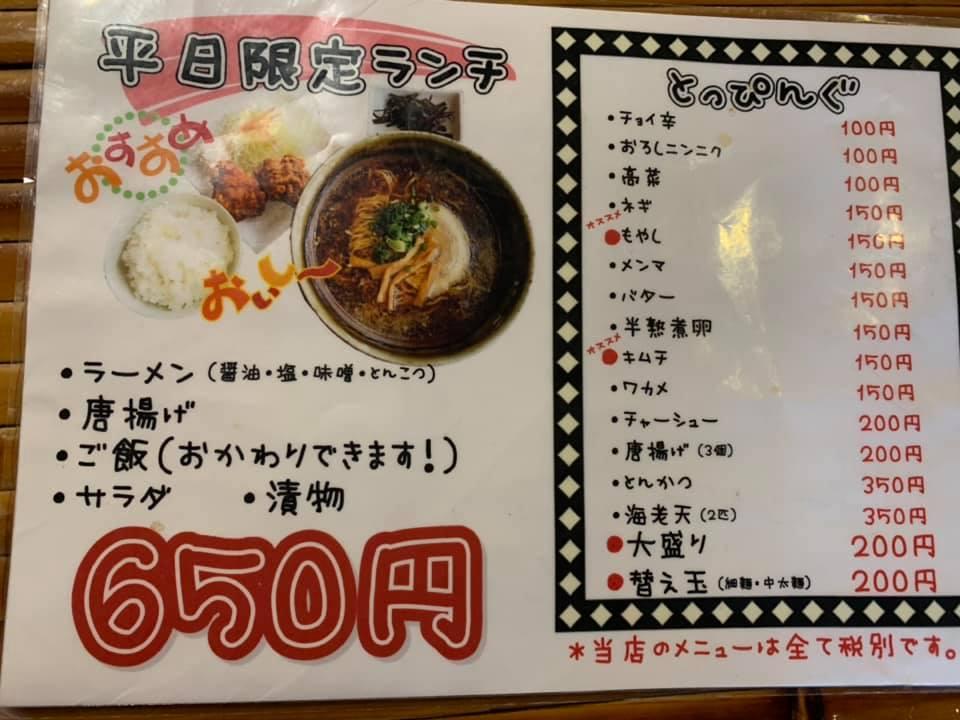 平日限定ランチ
おすすめ
おいし〜
・ラーメン(醤油・塩・味噌・とんこつ)
・唐揚げ
・ご飯(おかわりできます!)
・サラダ ・漬物
650円
とっぴんぐ
・チョイ辛 100円
・おろしニンニク 100円
・高菜 100円
・ネギ 150円
オススメ
●もやし 150円
・メンマ 150円
・バター 150円
・半熟煮卵 150円
オススメ
●キムチ 150円
・ワカメ 150円
・チャーシュー 200円
・唐揚げ(3個) 200円
・とんかつ 350円
・海老天(2匹) 350円
●大盛り 200円
●替え玉(細麺・中太麺) 200円
*当店のメニューは全て税別です。